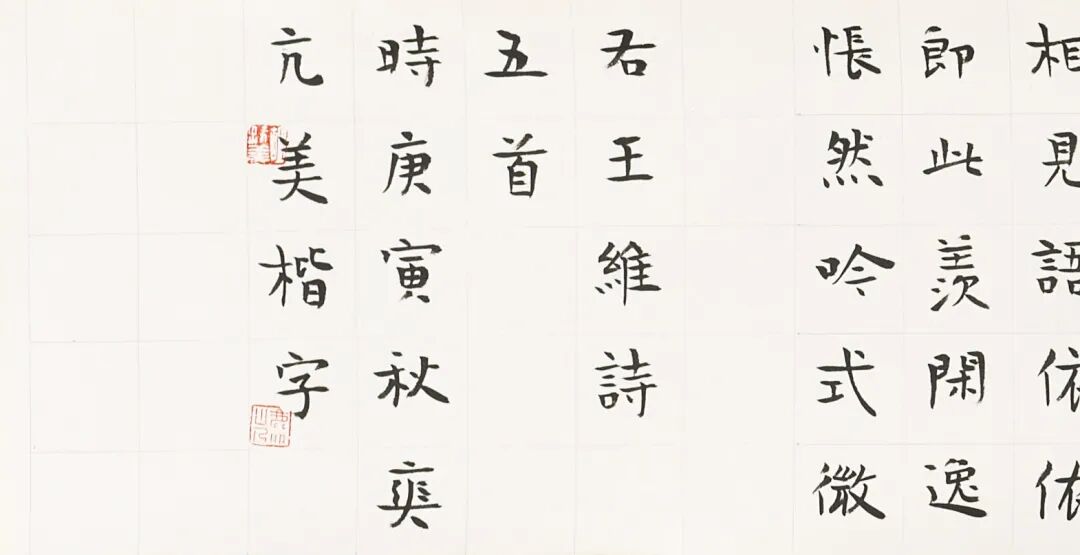 相見語依依
即此羨閑逸
悵然吟式微
右王維詩
五首
時庚寅秋奕
亢美楷字